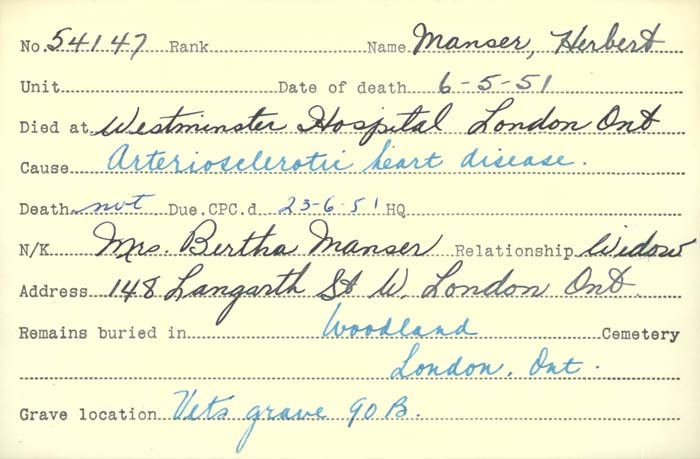 No. 54147 Rank Name Manser, Herbert
Unit Date of death 6-5-51
Died at Westminster Hospital London Ont
Cause Arteriosclerotic heart disease.
Death not Due. CPC.d 23-6-51 HQ
N/K Mrs. Bertha Manser Relationship Widow
Address 148 Langarth St W. London Ont.
Remains buried in Woodland Cemetery
London, Ont.
Grave location Vets grave 90 B.